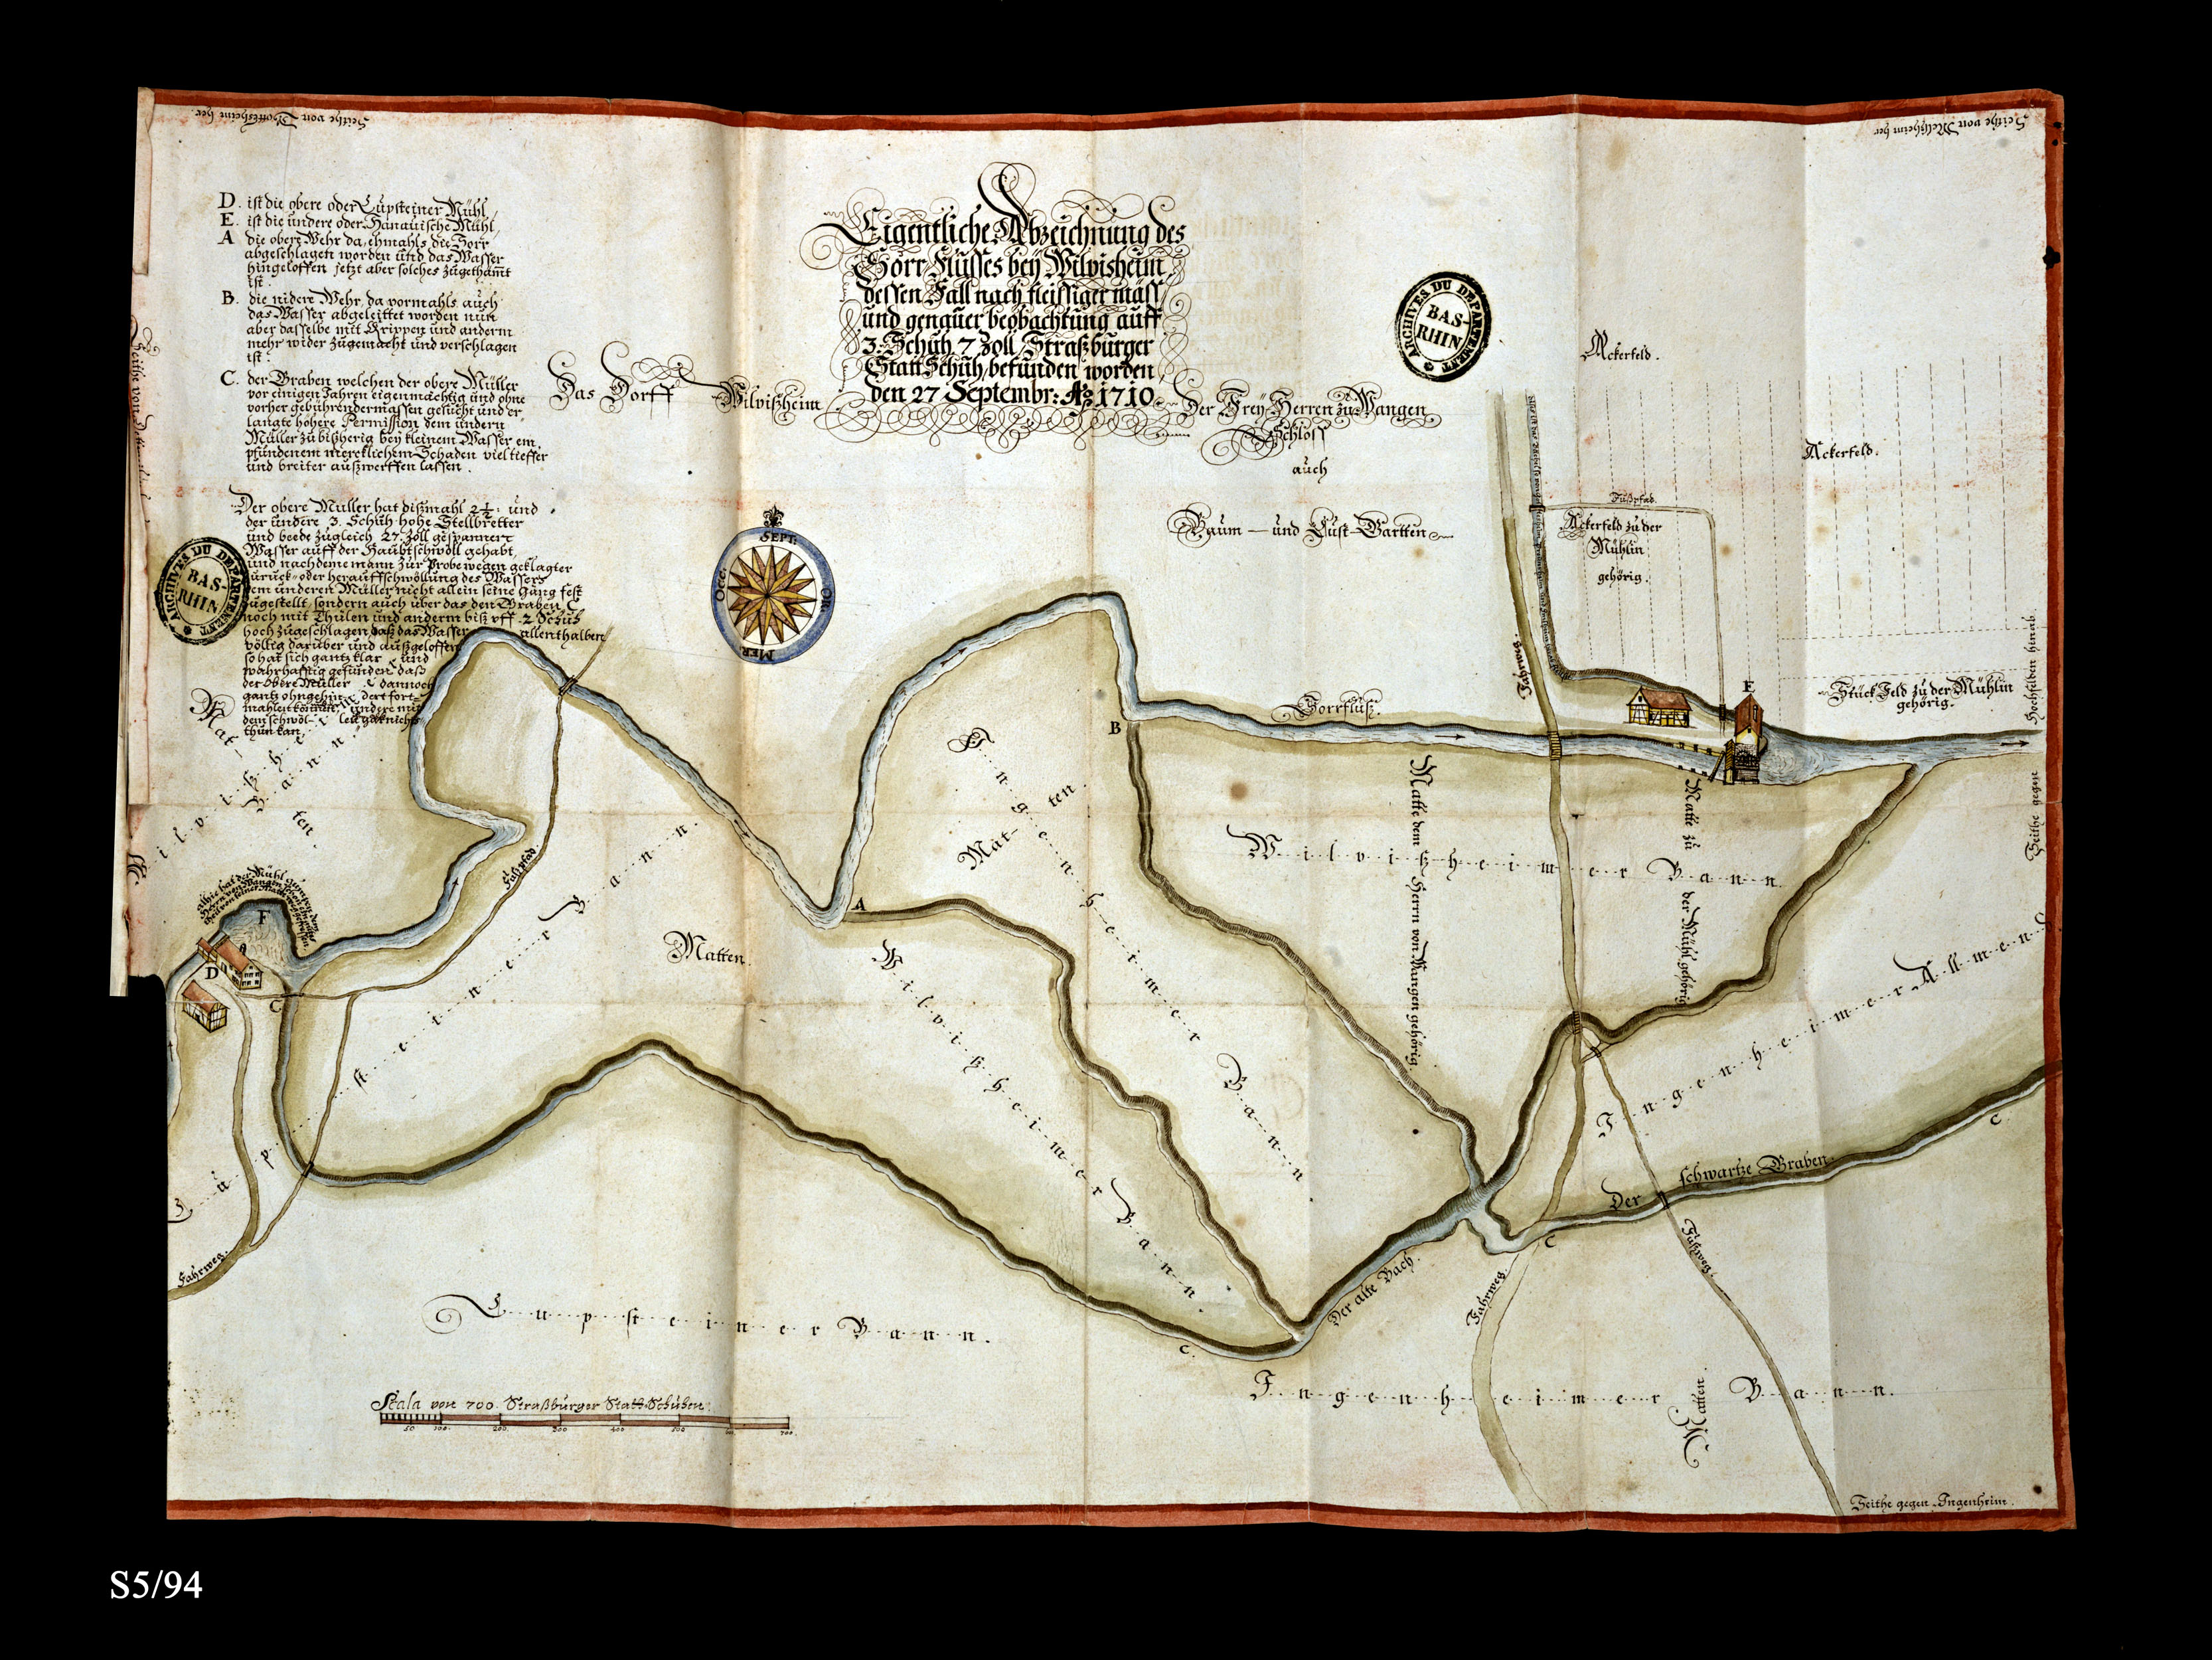 Seithe von Mellsheim her
D. ist die obere oder Lupsteiner Mühl,
E. ist die undere oder Hanauische Mühl,
A die obere Wehr da ehmahls die Sorr
abgeschlagen worden und das Wasser
hingeloffen jetzt aber solches zugethamt
ist.
B. die nidere Wehr, da vormahls auch
das Wasser abgeleittet worden nun
aber dasselbe mit Grippen und anderm
mehr wider zugemacht und verschlagen
ist.
C. der Graben welchen der obere Müller
vor einigen Jahren eigenmächtig und ohne
vorher gebührendermassen gesucht und er
langte höhere Permission dem undern
Müller zu bißherig bey kleinem Wasser em
pfundenem mercklichem Schaden viel tieffer
und breiter außwerffen lassen.
Der obere Müller hat dißmahl 2½: und
der undere 3. Schuh hohe Stellbretter
und beede zugleich 27. Zoll gespannert
Wasser auff der Haubtschwöll gehabt,
und nachdeme mann zur Probe wegen geklagter
zuruck- oder herauffschwöllung des Wassers
dem underen Müller nicht allein seine Gäng fest
zugestellt, sondern auch über das den Graben C
noch mit Thülen und anderm biß uff 2 Schuh
hoch zugeschlagen daß das Wasser allenthalben
völlig darüber und außgeloffen
so hat sich gantz klar und
wahrhafftig gefunden daß
der obere Müller dannoch
gantz ohngehindert fort
mahlen können,
thun kan.
Eigentliche Abzeichnung des
Sorr Flusses bey Wilvisheim,
dessen Fall nach fleissiger mäss
und genauer beobachtung auff
3. Schuh 7 Zoll Straßburger
Statt Schuh befunden worden
den 27 Septembr: Aº 1710.
Das Dorff Wilvißheim
Der Frey Herren zu Wangen
Schloss
auch
Baum- und Lust-Gartten
ARCHIVES DU DEPARTEMENT
BAS-
RHIN
ARCHIVES DU DEPARTEMENT
BAS-
RHIN
SEPT:
OR:
MER
OCC:
Ackerfeld.
Ackerfeld.
Fußpfad.
Ackerfeld zu der
Mühlin
gehörig.
Fahrweg.
E
Stück Feld zu der Mühlin
gehörig.
Seithe gegen Hochfelden hinab
Sorrfluß.
B
Wilvißheimer Bann
Matten
Ingenheimer Bann
Matten
Matte dem Herrn von Wangen gehörig
Matte zu der Mühl gehörig
Wilvißheimer Bann.
Fußpfad.
A
F
D
C
Matten.
Lupsteiner Bann.
Wilvißheimer Bann.
Ingenheimer Allmend
Der schwartze Graben
C
C
C
Der alte Bach.
Fahrweg.
Fahrweg.
Fußweg.
Lupsteiner Bann.
Ingenheimer Bann.
Matten
Scala von 700 Straßburger Statt Schuhen.
50 100. 200. 300 400 500 600 700.
Seithe gegen Ingenheim.
S5/94